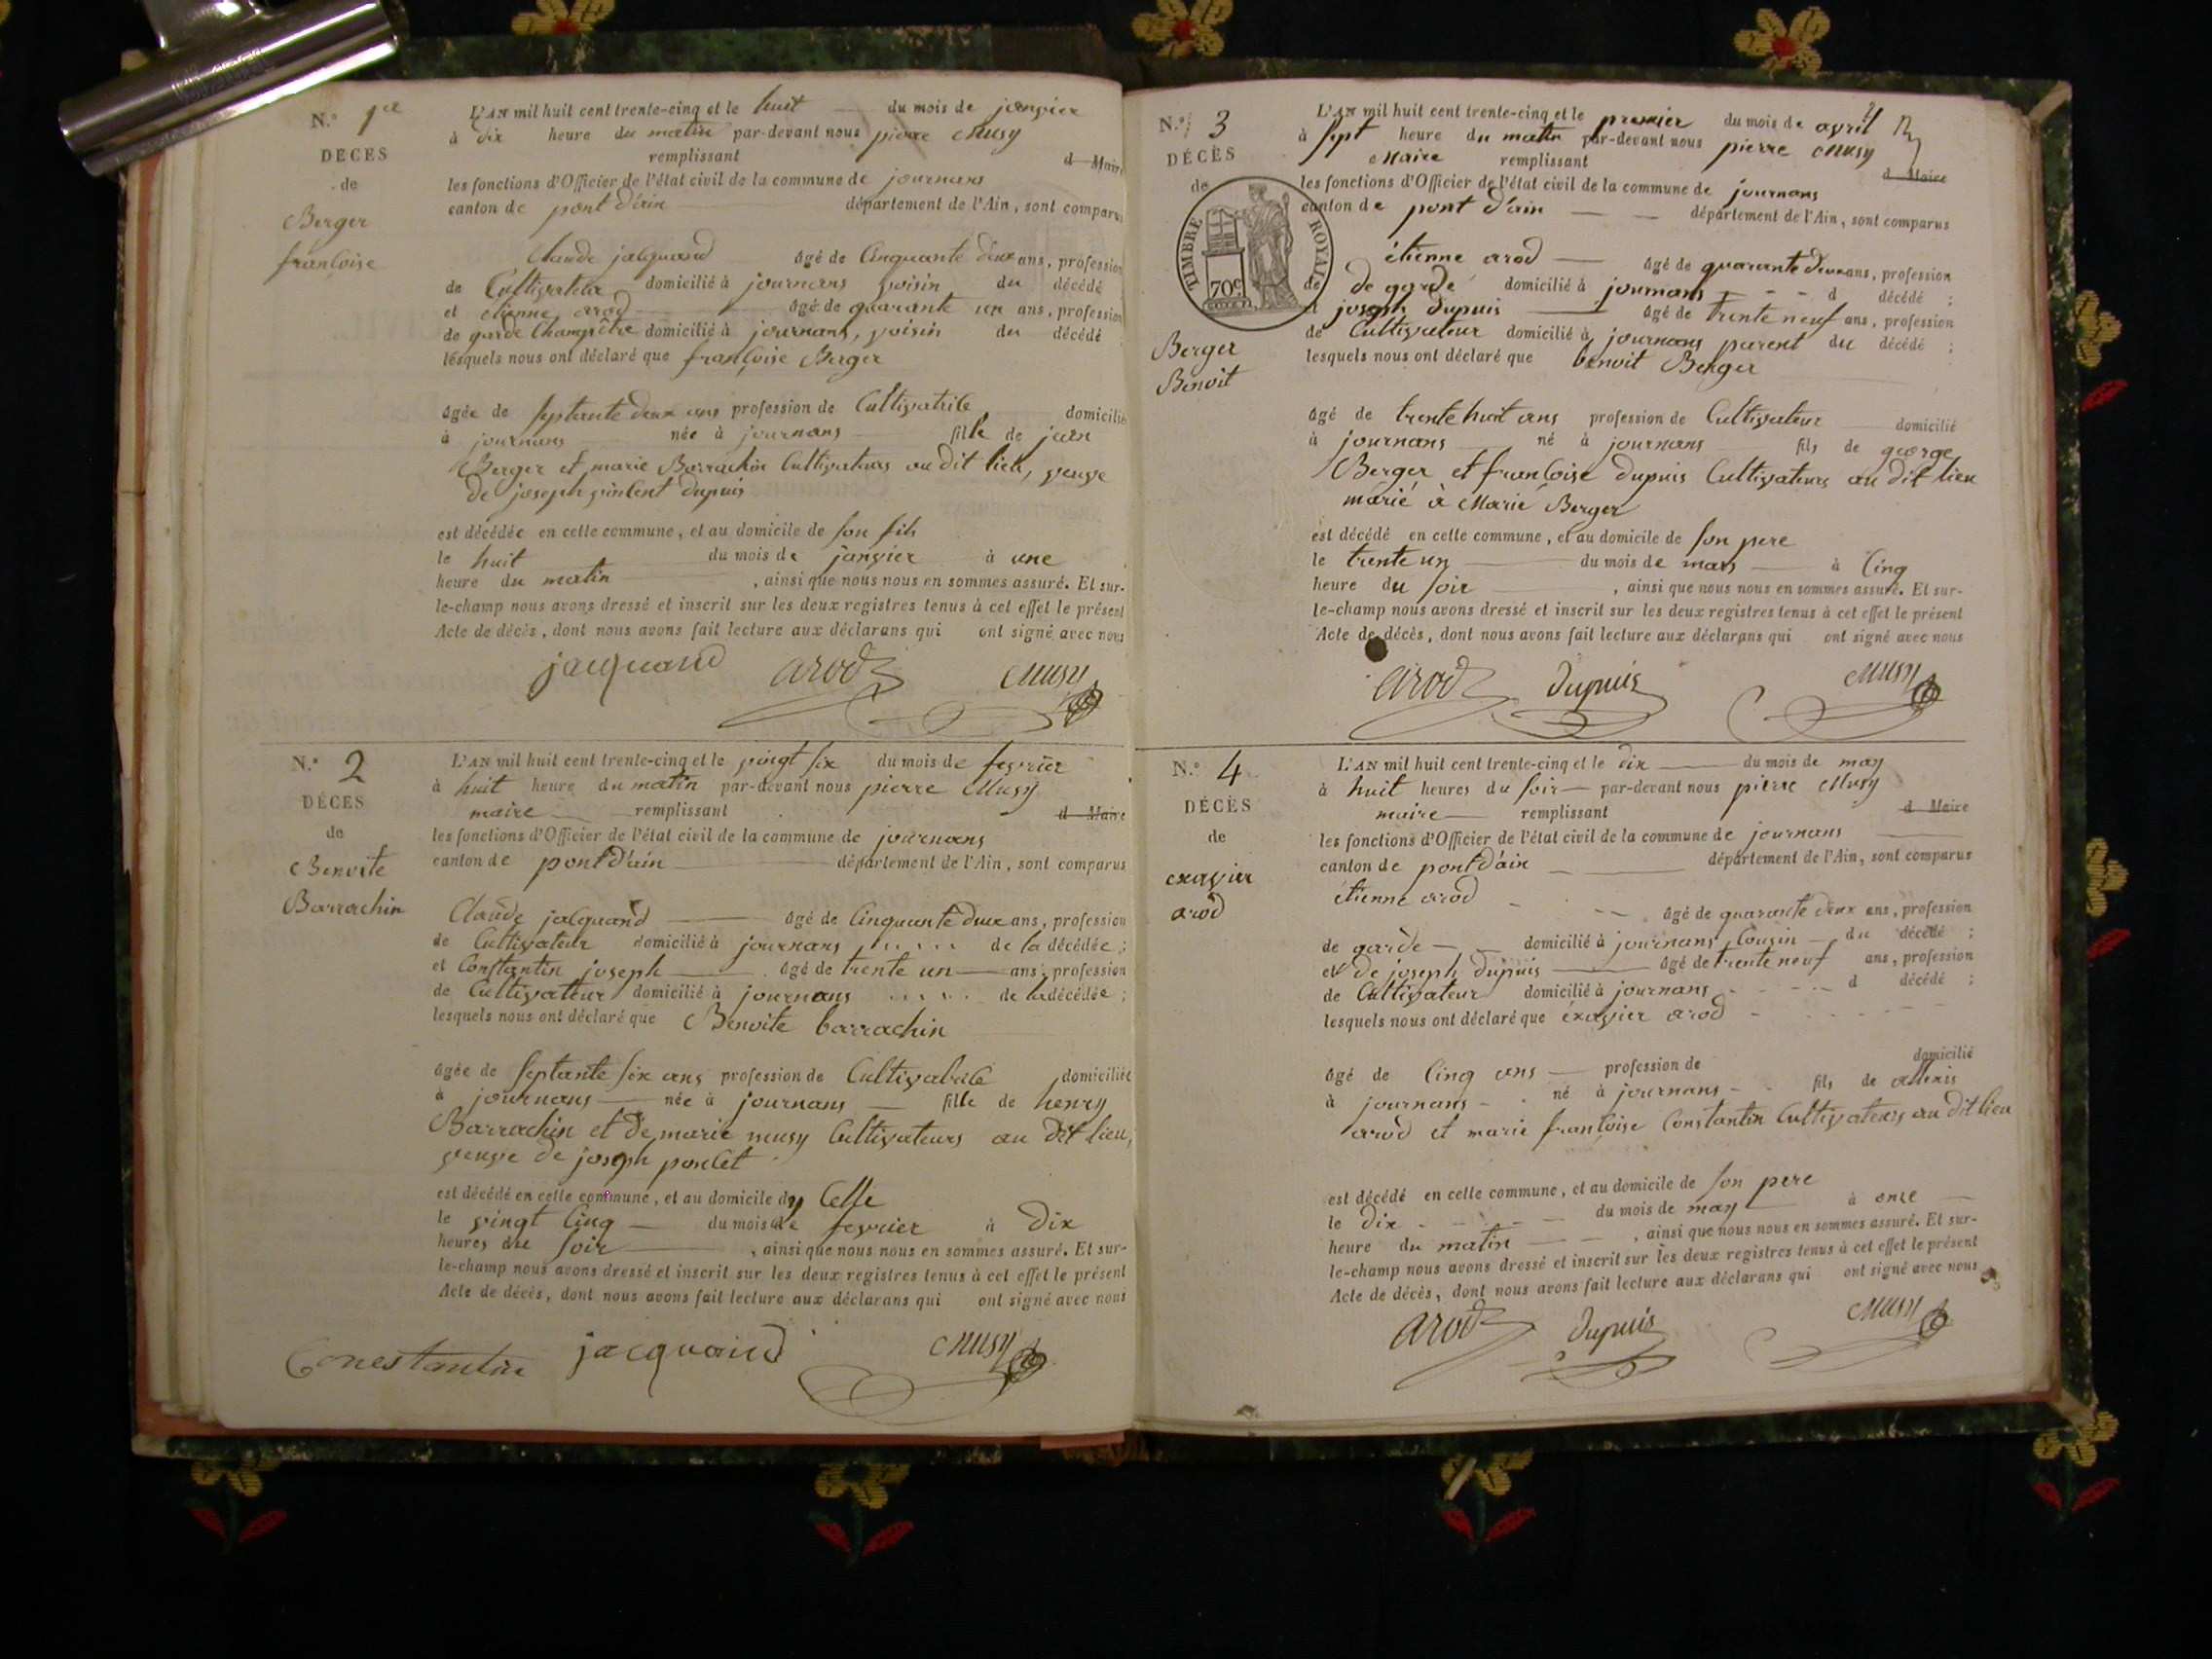 N.° 1er
DÉCES
de
Berger
françoise
L'AN mil huit cent trente-cinq et le huit du mois de janvier
à dix heure du matin par-devant nous pierre Musy
remplissant d Maire
les fonctions d'Officier de l'état civil de la commune de journans
canton de pont d'ain département de l'Ain, sont comparus
Claude jacquand âgé de Cinquante deux ans, profession
de Cultivateur domicilié à journans voisin du décédé
et etienne arod âgé de quarante un ans, profession
de garde Champêtre domicilié à journans, voisin du décédé
lesquels nous ont déclaré que françoise Berger
âgée de septante deux ans profession de Cultivatrice domicilié
à journans née à journans fille de jean
Berger et marie Barrachin Cultivateurs au dit lieu, veuve
de joseph vincent dupuis
est décédée en cette commune, et au domicile de son fils
le huit du mois de janvier à une
heure du matin , ainsi que nous nous en sommes assuré. Et sur-
le-champ nous avons dressé et inscrit sur les deux registres tenus à cet effet le présent
Acte de décès, dont nous avons fait lecture aux déclarans qui ont signé avec nous
jacquand arod Musy
N.° 2
DÉCES
de
Benoite
Barrachin
L'AN mil huit cent trente-cinq et le vingt six du mois de fevrier
à huit heure du matin par-devant nous pierre Musy
maire remplissant d Maire
les fonctions d'Officier de l'état civil de la commune de journans
canton de pont d'ain département de l'Ain, sont comparus
Claude jacquand âgé de Cinquante deux ans, profession
de Cultivateur domicilié à journans de la décédée ;
et Constantin joseph âgé de trente un ans, profession
de Cultivateur domicilié à journans de la décédée ;
lesquels nous ont déclaré que Benoite barrachin
âgée de septante six ans profession de Cultivatrice domiciliée
à journans née à journans fille de henry
Barrachin et de marie musy Cultivateurs au dit lieu,
veuve de joseph poncet
est décédé en cette commune, et au domicile dy Celle
le vingt Cinq du mois de fevrier à dix
heures du soir , ainsi que nous nous en sommes assuré. Et sur-
le-champ nous avons dressé et inscrit sur les deux registres tenus à cet effet le présent
Acte de décès, dont nous avons fait lecture aux déclarans qui ont signé avec nous
Conestantin jacquand Musy
N.° 3
DÉCÈS
de
TIMBRE ROYAL
70c
Berger
Benoit
L'AN mil huit cent trente-cinq et le premier du mois de avril
à sept heure du matin par-devant nous pierre Musy
Maire remplissant d Maire
les fonctions d'Officier de l'état civil de la commune de journans
canton de pont d'ain département de l'Ain, sont comparus
étienne arod âgé de quarante deux ans, profession
de de garde domicilié à journans d décédé ;
et joseph dupuis âgé de trente neuf ans, profession
de Cultivateur domicilié à journans parent du décédé ;
lesquels nous ont déclaré que benoit Berger
âgé de trente huit ans profession de Cultivateur domicilié
à journans né à journans fils de george
Berger et françoise dupuis Cultivateurs au dit lieu
marié à Marie Berger
est décédé en cette commune, et au domicile de son pere
le trente un du mois de mars à Cinq
heure du soir , ainsi que nous nous en sommes assuré. Et sur-
le-champ nous avons dressé et inscrit sur les deux registres tenus à cet effet le présent
Acte de décès, dont nous avons fait lecture aux déclarans qui ont signé avec nous
arod dupuis Musy
N.° 4
DÉCÈS
de
exavier
arod
L'AN mil huit cent trente-cinq et le dix du mois de may
à huit heures du soir par-devant nous pierre Musy
maire remplissant d Maire
les fonctions d'Officier de l'état civil de la commune de journans
canton de pont d'ain département de l'Ain, sont comparus
étienne arod âgé de quarante deux ans, profession
de garde domicilié à journans Cousin du décédé ;
et de joseph dupuis âgé de trente neuf ans, profession
de Cultivateur domicilié à journans d décédé ;
lesquels nous ont déclaré que éxavier arod
âgé de Cinq ans profession de domicilié
à journans né à journans fils de allexis
arod et marie françoise Constantin Cultivateurs au dit lieu
est décédé en cette commune, et au domicile de son pere
le dix du mois de may à onze
heure du matin , ainsi que nous nous en sommes assuré. Et sur-
le-champ nous avons dressé et inscrit sur les deux registres tenus à cet effet le présent
Acte de décès, dont nous avons fait lecture aux déclarans qui ont signé avec nous
arod dupuis Musy